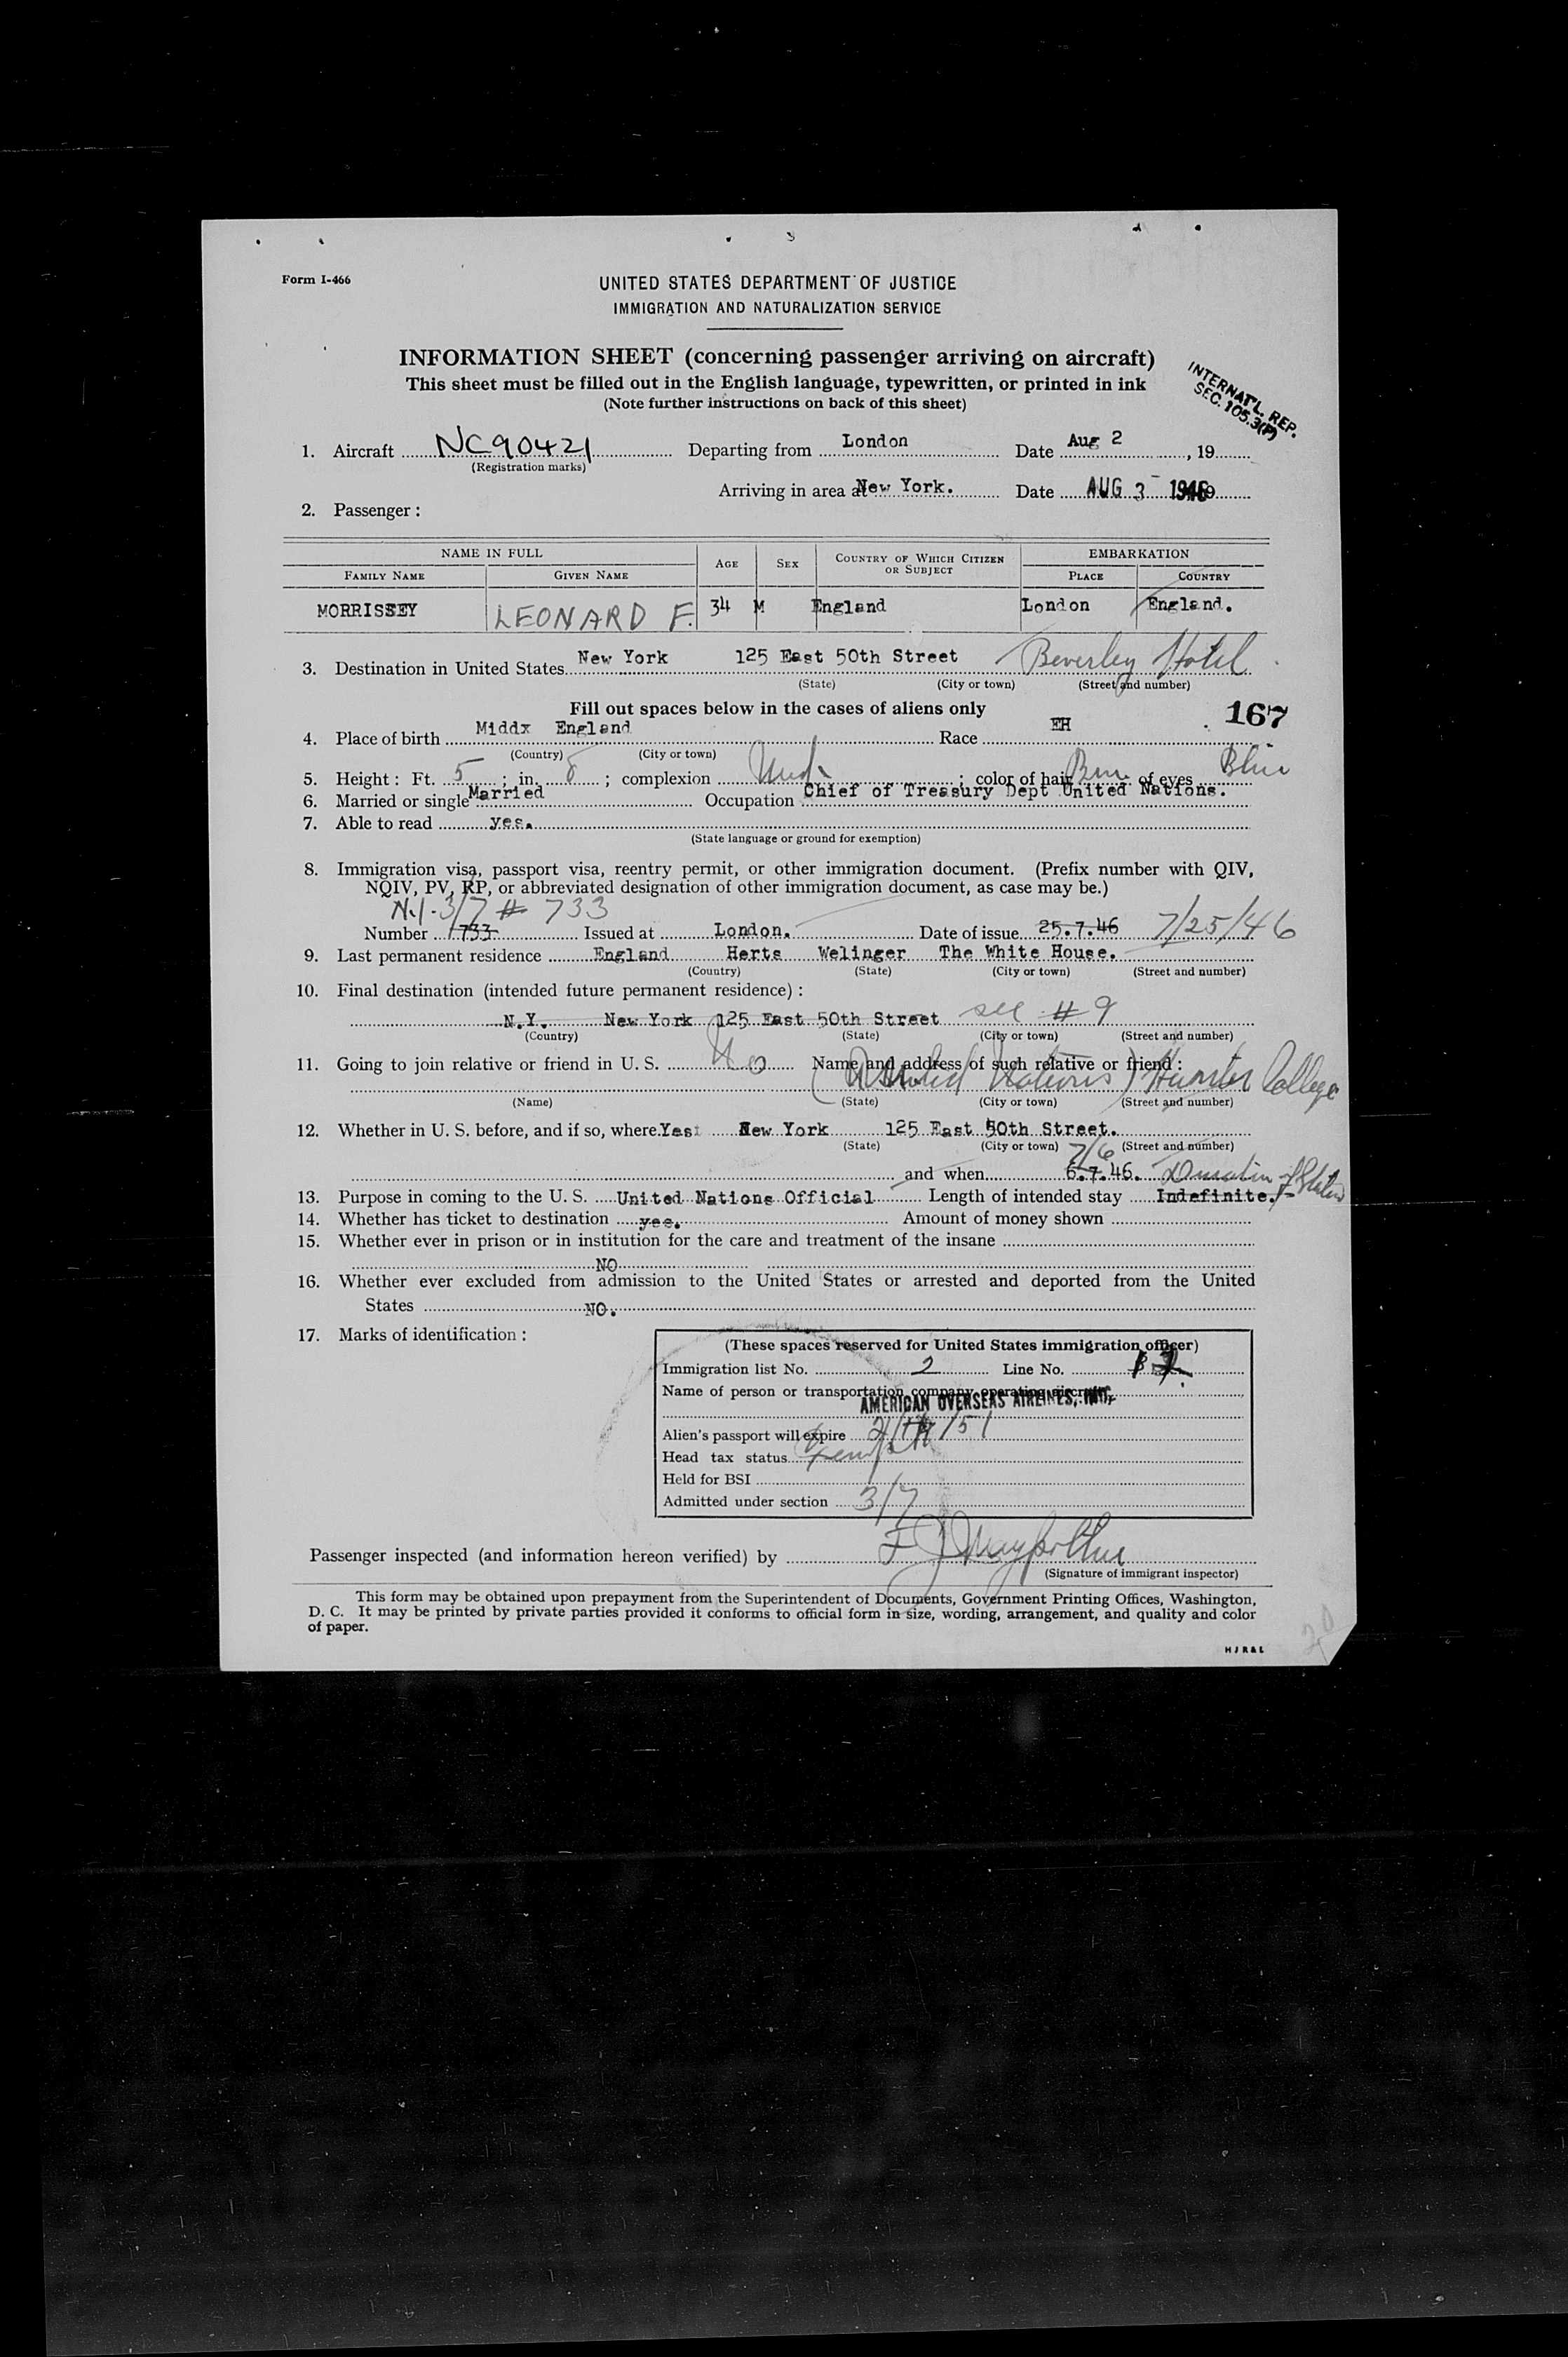 Form I-466
UNITED STATES DEPARTMENT OF JUSTICE
IMMIGRATION AND NATURALIZATION SERVICE
INFORMATION SHEET (concerning passenger arriving on aircraft)
This sheet must be filled out in the English language, typewritten, or printed in ink
(Note further instructions on back of this sheet)
INTERNAT'L. REP.
SEC. 105.3(P)
1. Aircraft NC90421 Departing from London Date Aug 2, 19
(Registration marks)
Arriving in area at New York. Date AUG 3 1946
2. Passenger :
NAME IN FULL AGE SEX COUNTRY OF WHICH CITIZEN OR SUBJECT EMBARKATION
FAMILY NAME GIVEN NAME PLACE COUNTRY
MORRISSEY LEONARD F. 34 M England London England.
3. Destination in United States New York 125 East 50th Street Beverley Hotel
(State) (City or town) (Street and number)
Fill out spaces below in the cases of aliens only
167
4. Place of birth Middx England Race EH
(Country) (City or town)
5. Height : Ft. 5 ; in. 8 ; complexion ; color of hair Brn. of eyes Blue
6. Married or single Married Occupation Chief of Treasury Dept United Nations.
7. Able to read yes.
(State language or ground for exemption)
8. Immigration visa, passport visa, reentry permit, or other immigration document. (Prefix number with QIV,
NQIV, PV, RP, or abbreviated designation of other immigration document, as case may be.)
N.I-3/7 # 733
Number 733 Issued at London. Date of issue 25.7.46 7/25/46
9. Last permanent residence England Herts Welinger The White House.
(Country) (State) (City or town) (Street and number)
10. Final destination (intended future permanent residence) :
N.Y. New York 125 East 50th Street see # 9
(Country) (State) (City or town) (Street and number)
11. Going to join relative or friend in U. S. No Name and address of such relative or friend :
(United Nations) Hunter College
(Name) (State) (City or town) (Street and number)
12. Whether in U. S. before, and if so, where Yes New York 125 East 50th Street.
(State) (City or town) (Street and number)
7/6
and when 6.7.46. Duration of Status
13. Purpose in coming to the U. S. United Nations Official Length of intended stay Indefinite.
14. Whether has ticket to destination yes. Amount of money shown
15. Whether ever in prison or in institution for the care and treatment of the insane
NO
16. Whether ever excluded from admission to the United States or arrested and deported from the United
States NO.
17. Marks of identification :
(These spaces reserved for United States immigration officer)
Immigration list No. 2 Line No.
Name of person or transportation company operating aircraft
AMERICAN OVERSEAS AIRLINES, INC.
Alien's passport will expire
Head tax status Exempt
Held for BSI
Admitted under section 3/7
Passenger inspected (and information hereon verified) by
(Signature of immigrant inspector)
This form may be obtained upon prepayment from the Superintendent of Documents, Government Printing Offices, Washington,
D. C. It may be printed by private parties provided it conforms to official form in size, wording, arrangement, and quality and color
of paper.
H J R & L
20